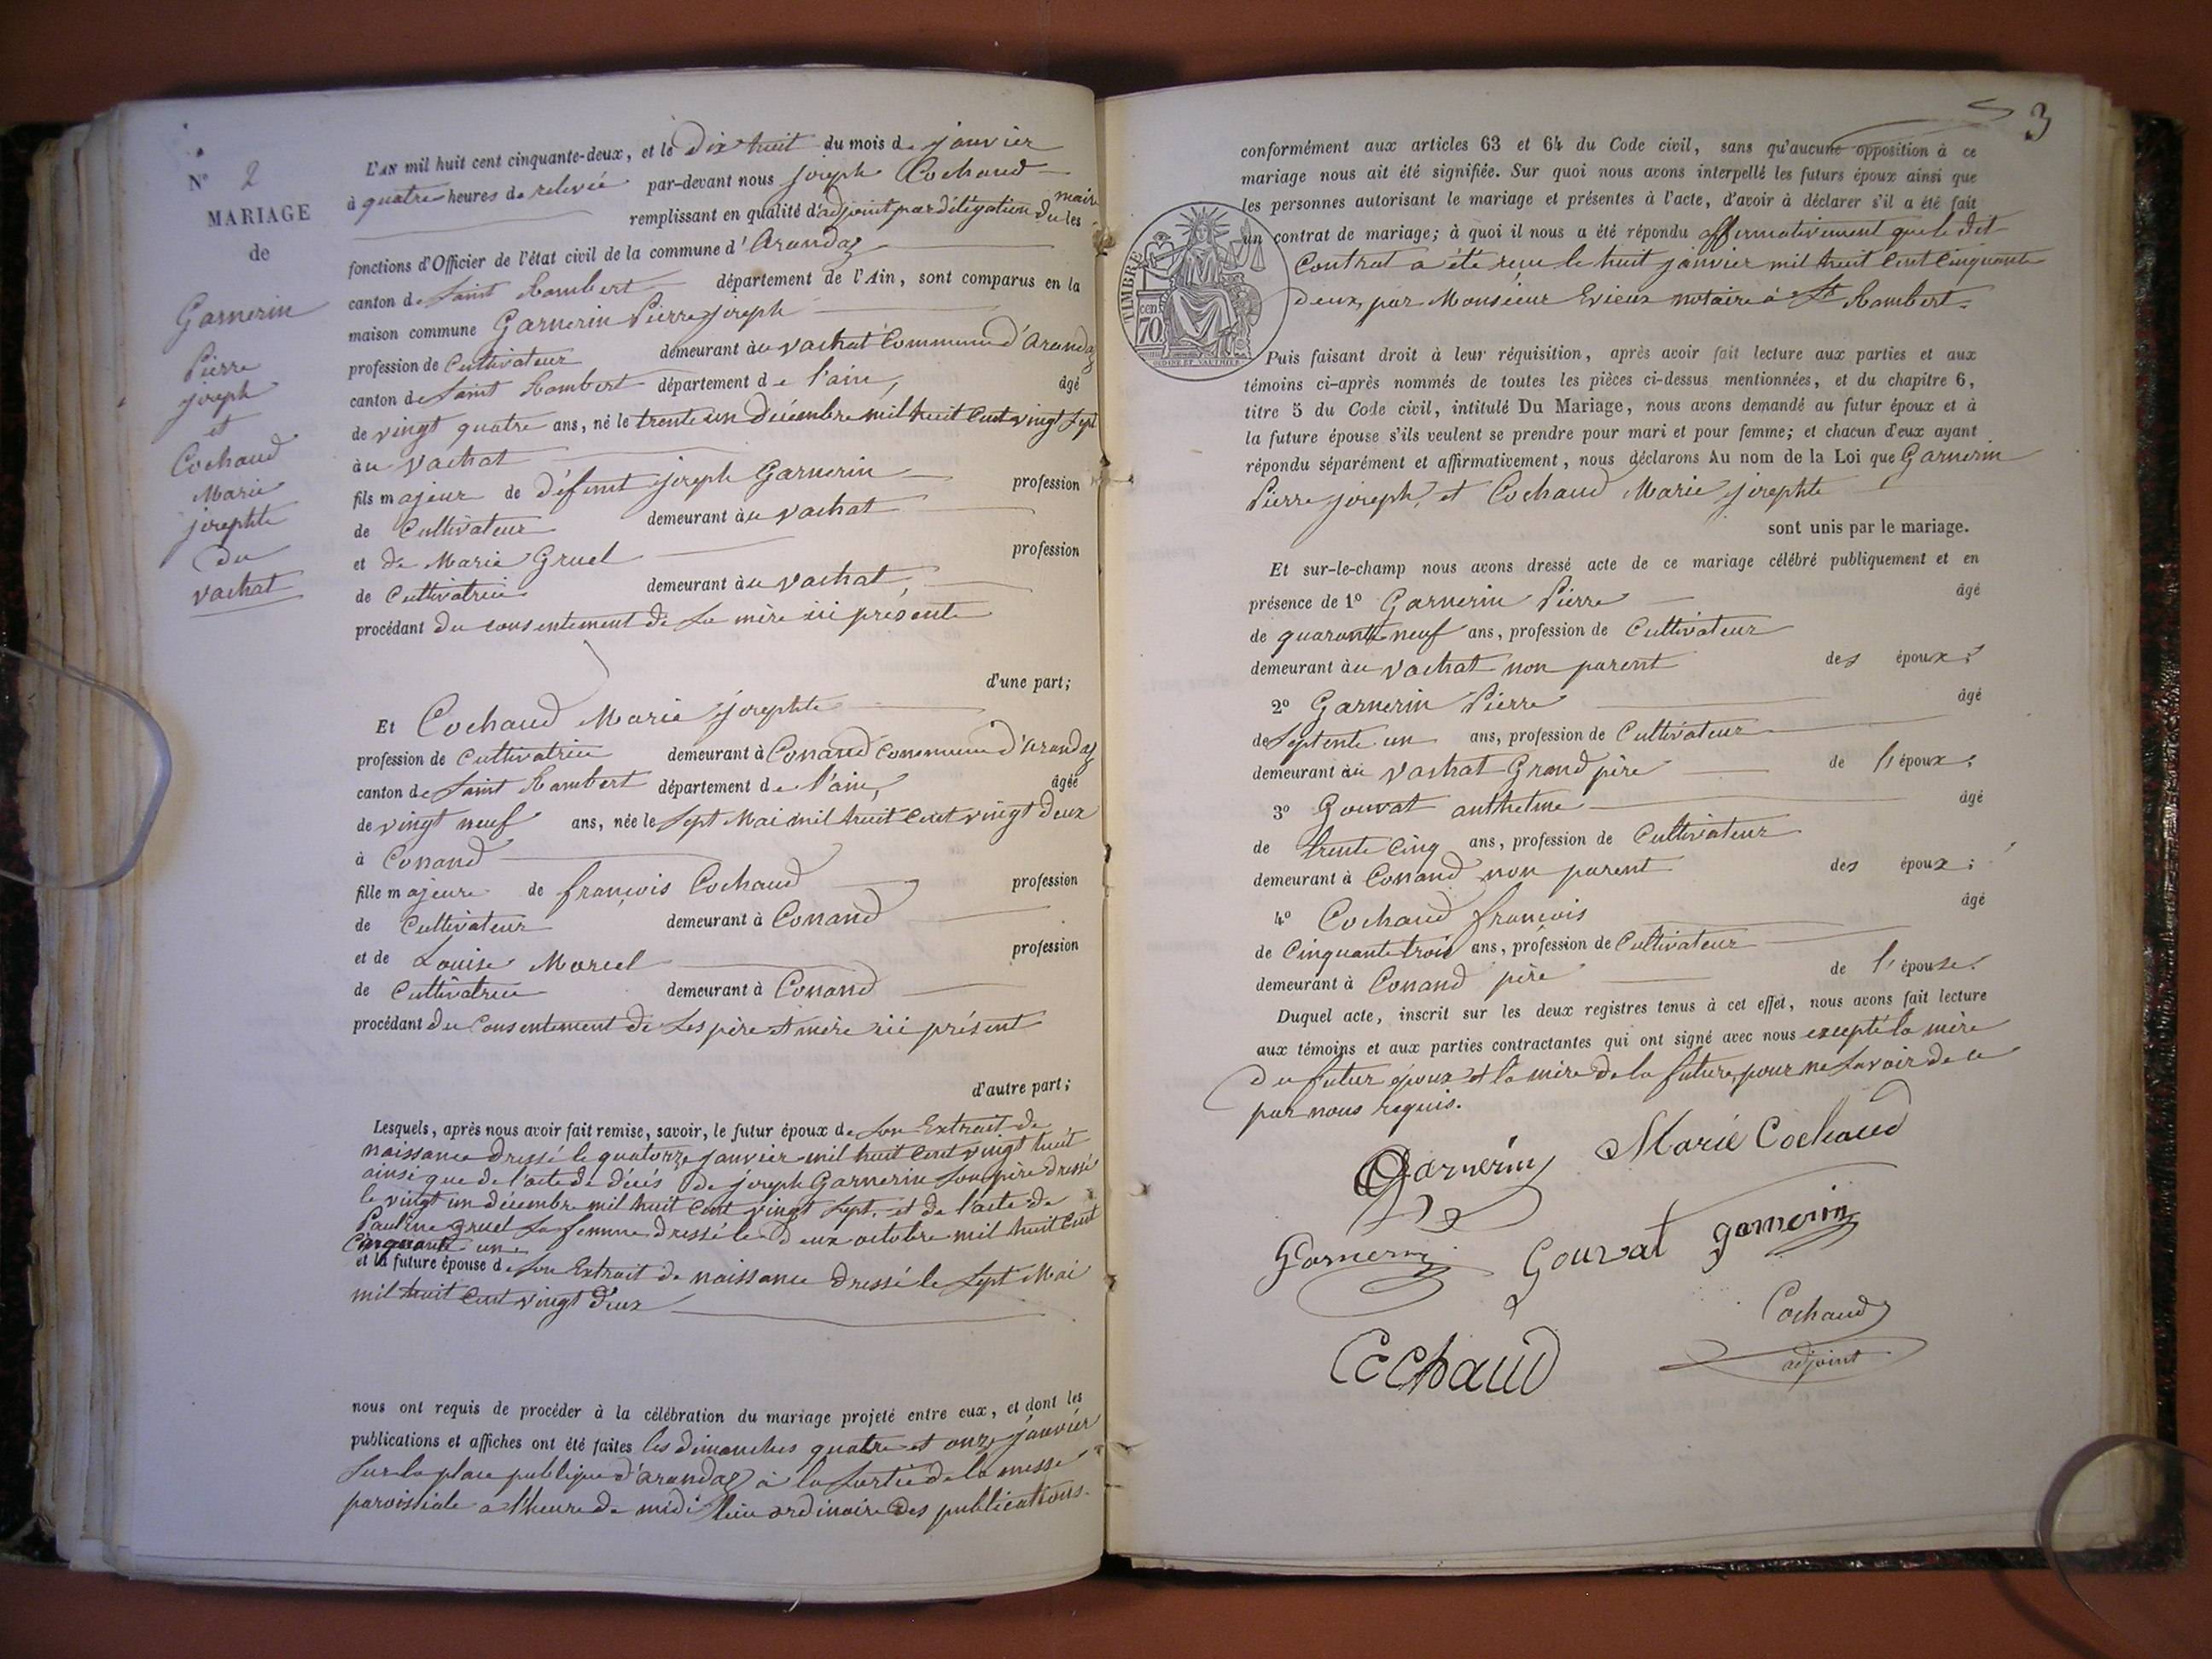 N° 2
MARIAGE
de
Garnerin
Pierre
joseph
et
Cochaud
Marie
josephte
du
vachat
L'AN mil huit cent cinquante-deux, et le Dix huit du mois de janvier
à quatre heures de relevée par-devant nous joseph Cochaud
remplissant en qualité d'adjoint par délégation du maire les
fonctions d'Officier de l'état civil de la commune d'Arandaz
canton de Saint Rambert département de l'Ain, sont comparus en la
maison commune Garnerin Pierre joseph
profession de Cultivateur demeurant au vachat Commune d'Arandaz
canton de Saint Rambert département de l'ain, âgé
de vingt quatre ans, né le trente un Décembre mil huit Cent vingt Sept
au vachat
fils majeur de défunt joseph Garnerin profession
de Cultivateur demeurant au vachat
et de Marie Gruel profession
de Cultivatrice demeurant au vachat
procédant du consentement de Sa mère ici présente
d'une part;
Et Cochaud Marie josephte
profession de Cultivatrice demeurant à Conand Commune d'Arandaz
canton de Saint Rambert département de l'ain, âgée
de vingt neuf ans, née le Sept Mai mil huit Cent vingt Deux
à Conand
fille majeure de françois Cochaud profession
de Cultivateur demeurant à Conand
et de Louise Morcel profession
de Cultivatrice demeurant à Conand
procédant du Consentement de Ses père et mère ici présent
d'autre part;
Lesquels, après nous avoir fait remise, savoir, le futur époux de Son Extrait de
naissance dressé le quatorze janvier mil huit Cent vingt huit
ainsi que de l'acte de décès de joseph Garnerin Son père dressé
le vingt un décembre mil huit Cent vingt Sept. et de l'acte de
Pauline Gruel Sa femme dressé le deux octobre mil huit Cent
Cinquante un
et la future épouse de Son Extrait de naissance dressé le Sept Mai
mil huit Cent vingt Deux
nous ont requis de procéder à la célébration du mariage projeté entre eux, et dont les
publications et affiches ont été faites les dimanches quatre et onze janvier
Sur la place publique d'arandaz à la Sortie de la messe
paroissiale a l'heure de midi lieu ordinaire des publications.
3
conformément aux articles 63 et 64 du Code civil, sans qu'aucune opposition à ce
mariage nous ait été signifiée. Sur quoi nous avons interpellé les futurs époux ainsi que
les personnes autorisant le mariage et présentes à l'acte, d'avoir à déclarer s'il a été fait
un contrat de mariage; à quoi il nous a été répondu affirmativement que le dit
Contrat a été reçu le huit janvier mil huit Cent Cinquante
deux, par Monsieur Evieux notaire à St Rambert.
TIMBRE
cen.
70
Puis faisant droit à leur réquisition, après avoir fait lecture aux parties et aux
témoins ci-après nommés de toutes les pièces ci-dessus mentionnées, et du chapitre 6,
titre 5 du Code civil, intitulé Du Mariage, nous avons demandé au futur époux et à
la future épouse s'ils veulent se prendre pour mari et pour femme; et chacun d'eux ayant
répondu séparément et affirmativement, nous déclarons Au nom de la Loi que Garnerin
Pierre joseph, et Cochaud Marie josephte
sont unis par le mariage.
Et sur-le-champ nous avons dressé acte de ce mariage célébré publiquement et en
présence de 1° Garnerin Pierre âgé
de quarante neuf ans, profession de Cultivateur
demeurant au vachat non parent des époux;
2° Garnerin Pierre âgé
de Septente un ans, profession de Cultivateur
demeurant au vachat Grand père de l'époux;
3° Gouvat anthelme âgé
de trente Cinq ans, profession de Cultivateur
demeurant à Conand non parent des époux;
4° Cochaud françois âgé
de Cinquante trois ans, profession de Cultivateur
demeurant à Conand père de l'épouse.
Duquel acte, inscrit sur les deux registres tenus à cet effet, nous avons fait lecture
aux témoins et aux parties contractantes qui ont signé avec nous excepté la mère
du futur époux et la mère de la future, pour ne Savoir de ce
par nous requis.
Garnerin Marie Cochaud
Garnerin Gouvat garnerin
Cochaud
adjoint
Cochaud